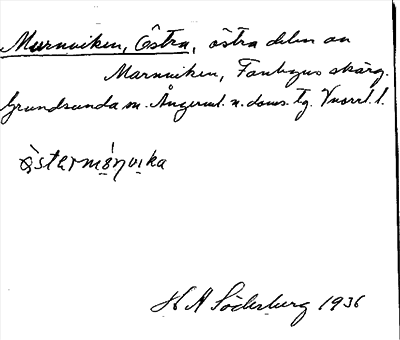 Marnviken, Östra, östra delen av
Marnviken, Fanbyns skärg.
Grundsunda sn. Ångerml. n. doms. tg. Vnorrl. l.
östermą̀rnvika
H A Söderburg 1936